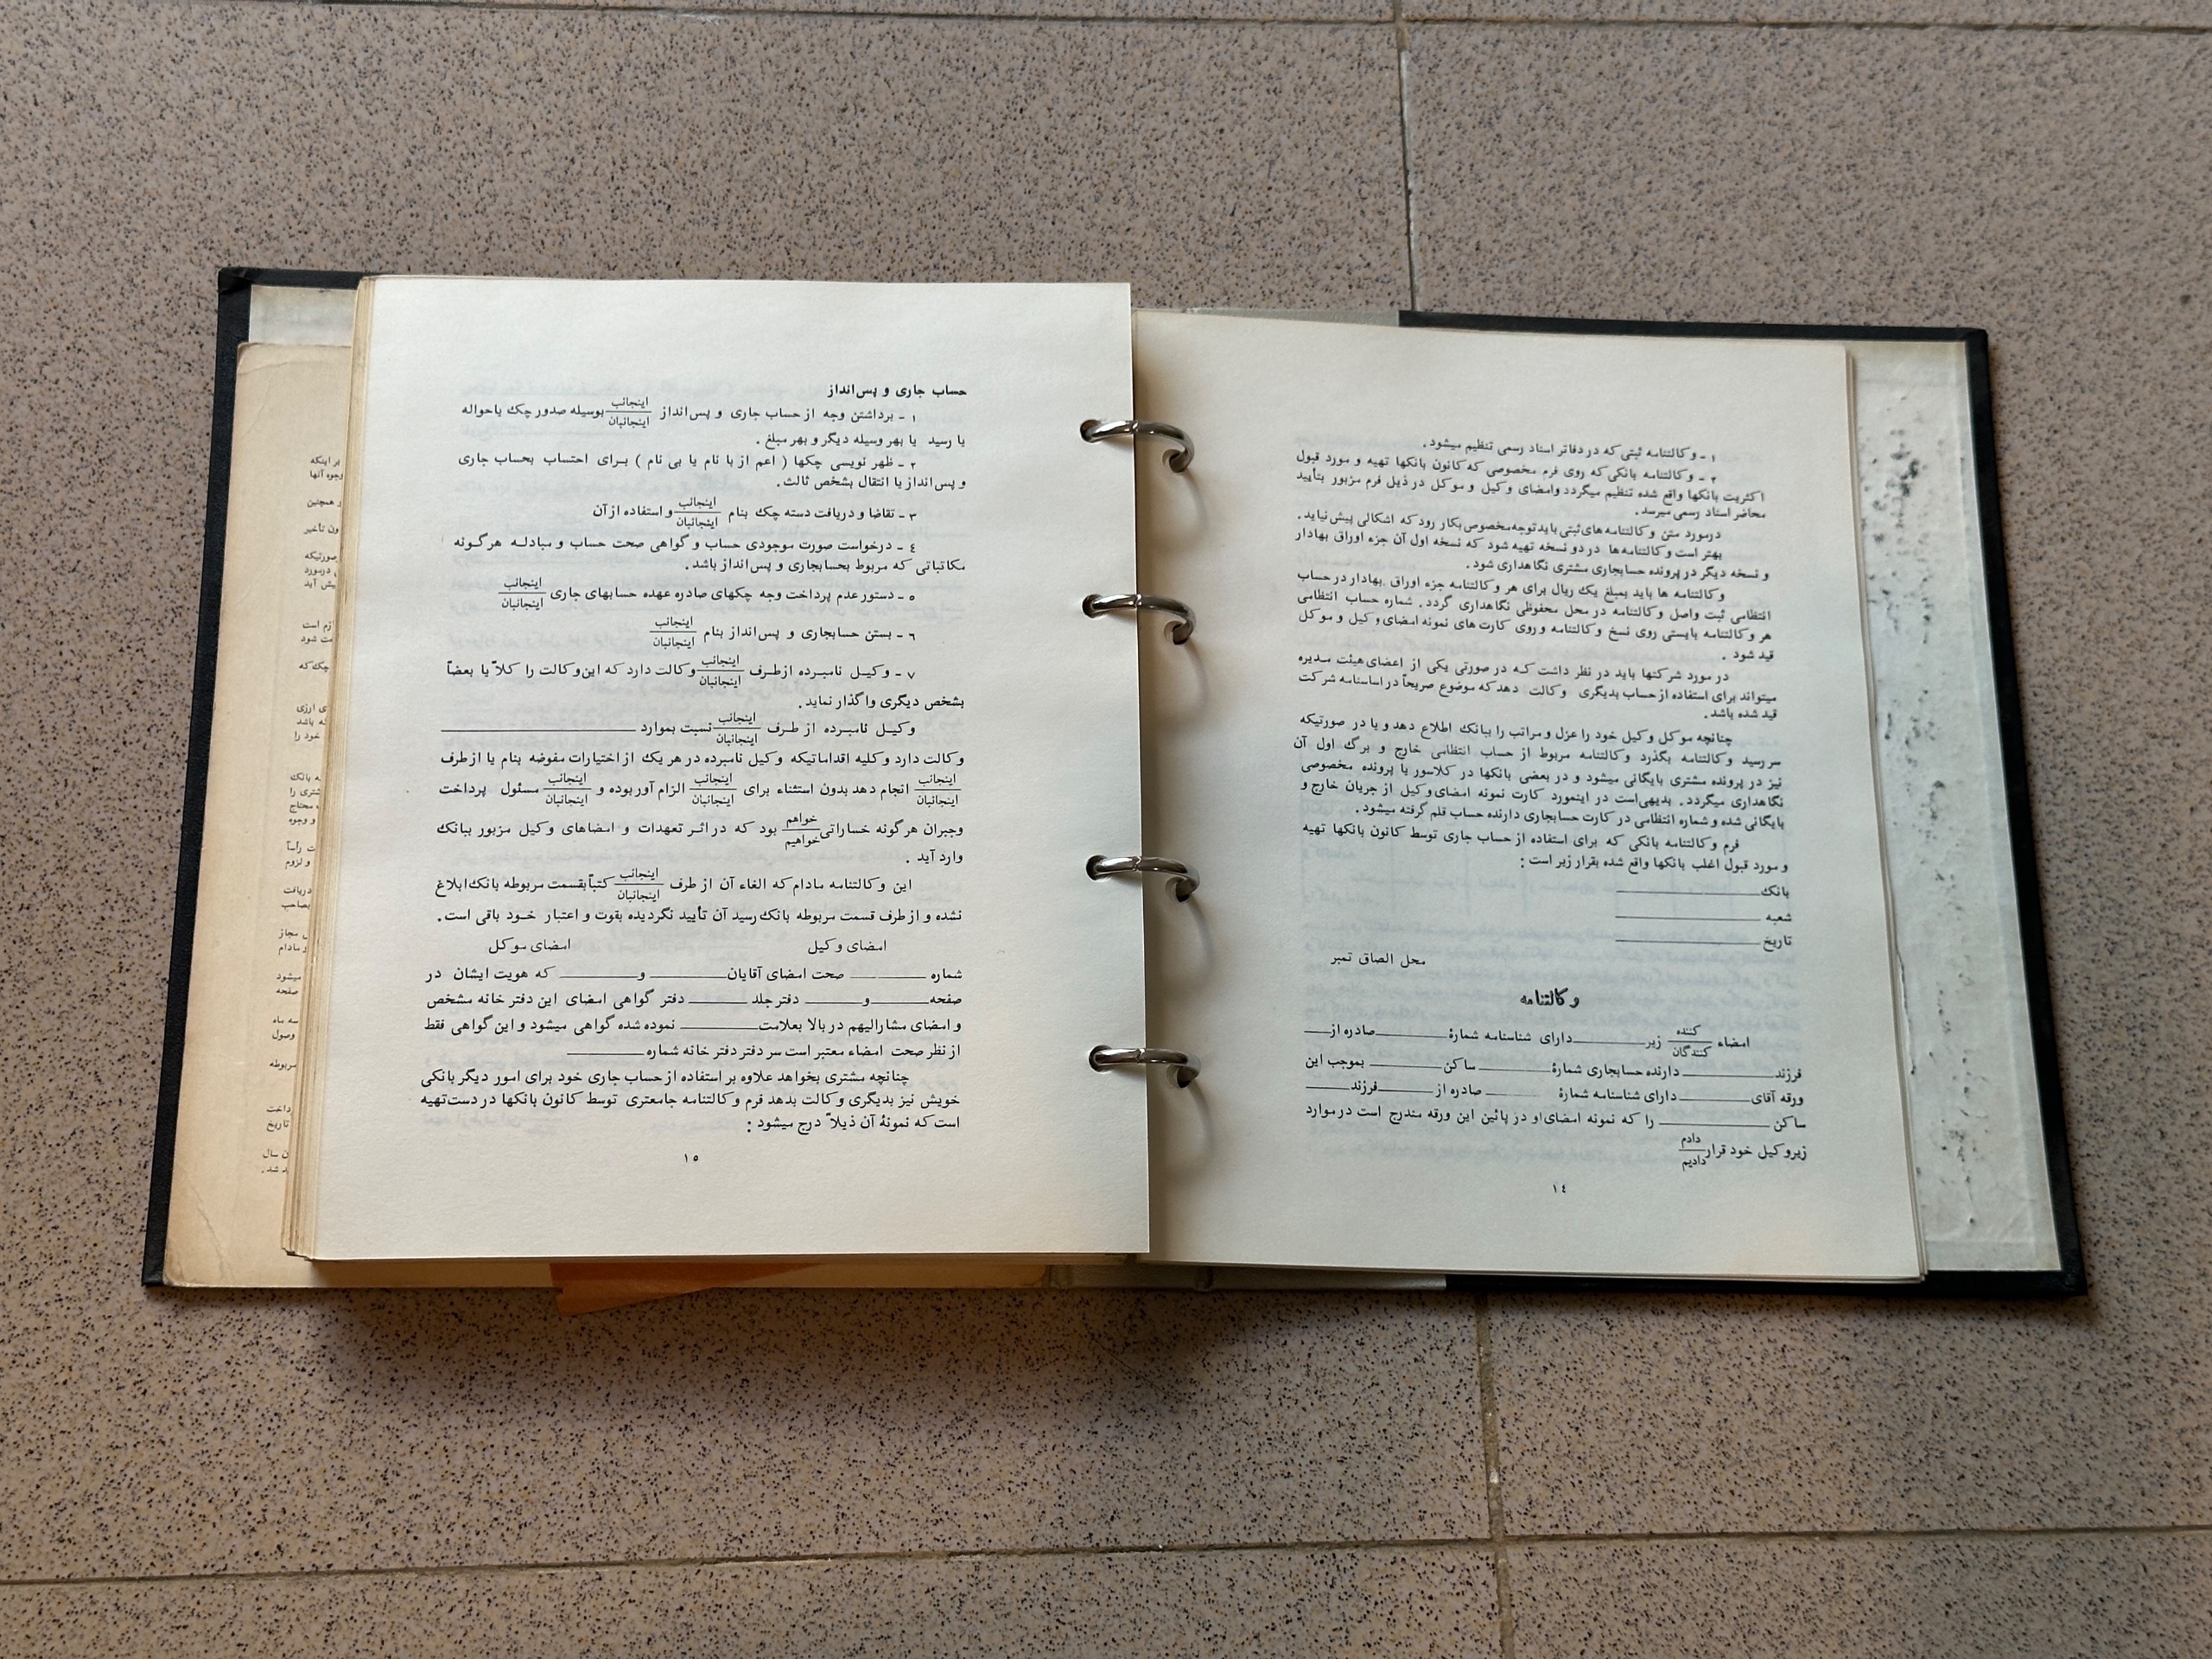 ۱ - وکالتنامه ثبتی که در دفاتر اسناد رسمی تنظیم میشود .
۲ - وکالتنامه بانکی که روی فرم مخصوصی که کانون بانکها تهیه و مورد قبول
اکثریت بانکها واقع شده تنظیم میگردد وامضای وکیل و موکل در ذیل فرم مزبور بتأیید
محاضر اسناد رسمی میرسد .
درمورد متن وکالتنامه های ثبتی باید توجه مخصوص بکار رود که اشکالی پیش نیاید .
بهتر است وکالتنامه ها در دو نسخه تهیه شود که نسخه اول آن جزء اوراق بهادار
و نسخه دیگر در پرونده حسابجاری مشتری نگاهداری شود .
وکالتنامه ها باید بمبلغ یک ریال برای هر وکالتنامه جزء اوراق بهادار در حساب
انتظامی ثبت واصل وکالتنامه در محل محفوظی نگاهداری گردد . شماره حساب انتظامی
هر وکالتنامه بایستی روی نسخ وکالتنامه و روی کارت های نمونه امضای وکیل و موکل
قید شود .
در مورد شرکتها باید در نظر داشت که در صورتی یکی از اعضای هیئت مدیره
میتواند برای استفاده از حساب بدیگری وکالت دهد که موضوع صریحاً در اساسنامه شرکت
قید شده باشد .
چنانچه موکل وکیل خود را عزل و مراتب را ببانک اطلاع دهد و یا در صورتیکه
سررسید وکالتنامه بگذرد وکالتنامه مربوط از حساب انتظامی خارج و برگ اول آن
نیز در پرونده مشتری بایگانی میشود و در بعضی بانکها در کلاسور یا پرونده مخصوصی
نگاهداری میگردد . بدیهی است در اینمورد کارت نمونه امضای وکیل از جریان خارج و
بایگانی شده و شماره انتظامی در کارت حسابجاری دارنده حساب قلم گرفته میشود .
فرم وکالتنامه بانکی که برای استفاده از حساب جاری توسط کانون بانکها تهیه
و مورد قبول اغلب بانکها واقع شده بقرار زیر است :
بانک ______
شعبه ______
تاریخ ______
محل الصاق تمبر
وکالتنامه
امضاء کننده / کنندگان زیر ______ دارای شناسنامه شمارهٔ ______ صادره از ______
فرزند ______ دارنده حسابجاری شمارهٔ ______ ساکن ______ بموجب این
ورقه آقای ______ دارای شناسنامه شمارهٔ ______ صادره از ______ فرزند ______
ساکن ______ را که نمونه امضای او در پائین این ورقه مندرج است در موارد
زیر وکیل خود قرار دادم / دادیم
۱٤
حساب جاری و پس‌انداز
۱ - برداشتن وجه از حساب جاری و پس‌انداز اینجانب / اینجانبان بوسیله صدور چک یا حواله
یا رسید یا بهر وسیله دیگر و بهر مبلغ .
۲ - ظهر نویسی چکها ( اعم از با نام یا بی نام ) برای احتساب بحساب جاری
و پس‌انداز یا انتقال بشخص ثالث .
۳ - تقاضا و دریافت دسته چک بنام اینجانب / اینجانبان و استفاده از آن
٤ - درخواست صورت موجودی حساب و گواهی صحت حساب و مبادله هرگونه
مکاتباتی که مربوط بحسابجاری و پس‌انداز باشد .
۵ - دستور عدم پرداخت وجه چکهای صادره عهده حسابهای جاری اینجانب / اینجانبان
٦ - بستن حسابجاری و پس‌انداز بنام اینجانب / اینجانبان
۷ - وکیل نامبرده از طرف اینجانب / اینجانبان وکالت دارد که این وکالت را کلاً یا بعضاً
بشخص دیگری واگذار نماید .
وکیل نامبرده از طرف اینجانب / اینجانبان نسبت بموارد ______
وکالت دارد و کلیه اقداماتیکه وکیل نامبرده در هر یک از اختیارات مفوضه بنام یا از طرف
اینجانب / اینجانبان انجام دهد بدون استثناء برای اینجانب / اینجانبان الزام آور بوده و اینجانب / اینجانبان مسئول پرداخت
وجبران هرگونه خساراتی خواهم / خواهیم بود که در اثر تعهدات و امضاهای وکیل مزبور ببانک
وارد آید .
این وکالتنامه مادام که الغاء آن از طرف اینجانب / اینجانبان کتباً بقسمت مربوطه بانک ابلاغ
نشده و از طرف قسمت مربوطه بانک رسید آن تأیید نگردیده بقوت و اعتبار خود باقی است .
امضای وکیل امضای موکل
شماره ______ صحت امضای آقایان ______ و ______ که هویت ایشان در
صفحه ______ و ______ دفتر جلد ______ دفتر گواهی امضای این دفترخانه مشخص
و امضای مشارالیهم در بالا بعلامت ______ نموده شده گواهی میشود و این گواهی فقط
از نظر صحت امضاء معتبر است سر دفتر دفتر خانه شماره ______
چنانچه مشتری بخواهد علاوه بر استفاده از حساب جاری خود برای امور دیگر بانکی
خویش نیز بدیگری وکالت بدهد فرم وکالتنامه جامعتری توسط کانون بانکها در دست تهیه
است که نمونهٔ آن ذیلاً درج میشود :
۱۵